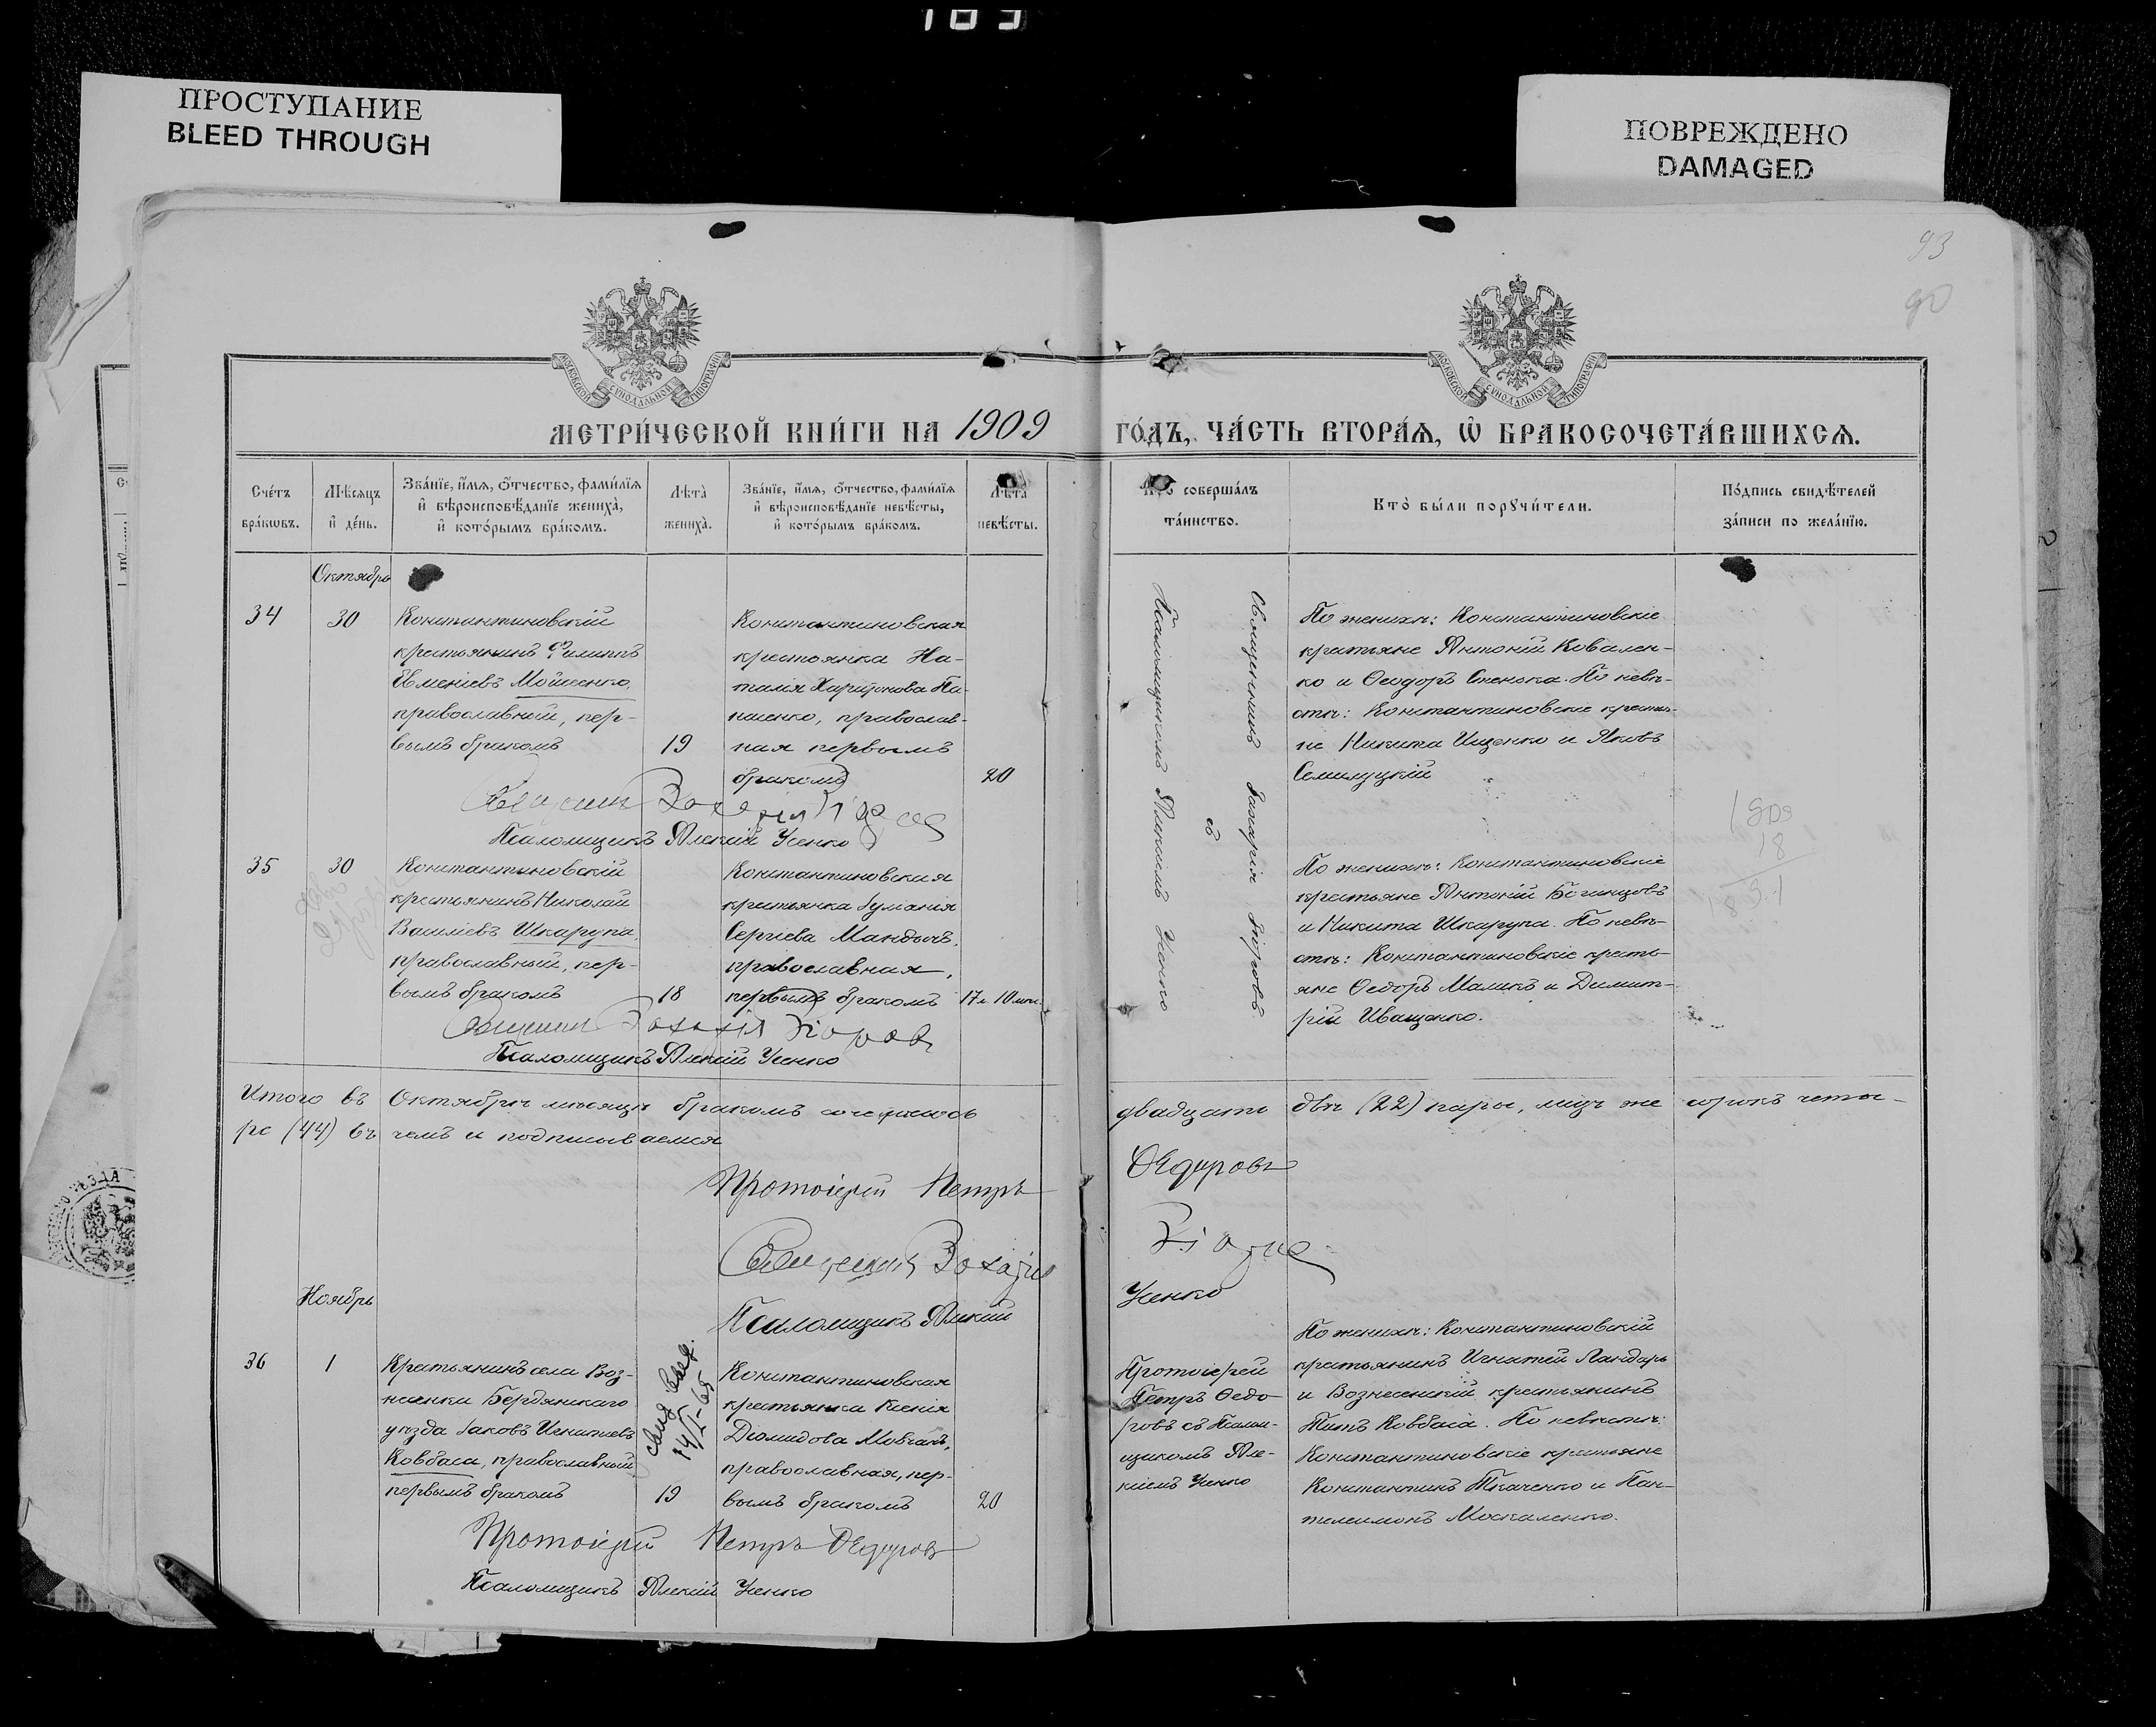 ПРОСТУПАНИЕ
BLEED THROUGH
ПОВРЕЖДЕНО
DAMAGED
93
90
МОСКОВСКОЙ СѴНОДАЛЬНОЙ ТИПОГРАФІИ
МОСКОВСКОЙ СѴНОДАЛЬНОЙ ТИПОГРАФІИ
МЕТРИ́ЧЕСКОЙ КНИ́ГИ НА 1909 ГО́ДЪ, ЧА́СТЬ ВТОРА́Я, Ѡ БРАКОСОЧЕТА́ВШИХСЯ.
Сче́тъ
бра́кωвъ.
Мѣ́сяцъ
и҆ де́нь.
Зва́нїе, и҆́мя, ѻ҆́тчество, фами́лїя
и҆ вѣроисповѣ́данїе жениха̀,
и҆ кото́рымъ бра́комъ.
Лѣта̀
жениха̀.
Зва́нїе, и҆́мя, ѻ҆́тчество, фами́лїя
и҆ вѣроисповѣ́данїе невѣ́сты,
и҆ кото́рымъ бра́комъ.
Лѣта̀
невѣ́сты.
Кто̀ соверша́лъ
та́инство.
Кто̀ бы́ли порꙋчи́тели.
По́дпись свидѣ́телей
за́писи по жела́нїю.
Октябрь
34
30
Константиновскій
крестьянинъ Филиппъ
Мойсеенко,
православный, пер-
вымъ бракомъ
19
Константиновская
крестьянка На-
талія Харитонова Па-
наенко, православ-
ная первымъ
бракомъ
20
Священникъ Захарія
Псаломщикъ Алексій Усенко
Священникъ Захарія
съ
Псаломщикомъ Алексіемъ Усенко
По женихѣ: Константиновскіе
крестьяне Антоній Ковален-
ко и Ѳеодоръ Стенька. По невѣ-
стѣ: Константиновскіе крестья-
не Никита Ищенко и Яковъ
Семилуцкій
35
30
Константиновскій
крестьянинъ Николай
Василіевъ Шкарупа,
православный, пер-
вымъ бракомъ
18
Константиновская
крестьянка Іуліанія
Сергіева Мандычъ,
православная,
первымъ бракомъ
17 л. 10 мѣс.
Священникъ Захарія
Псаломщикъ Алексій Усенко
По женихѣ: Константиновскіе
крестьяне Антоній Боганцовъ
и Никита Шкарупа. По невѣ-
стѣ: Константиновскіе кресть-
яне Ѳеодоръ Маликъ и Димит-
рій Иващенко.
1909
18
Итого въ Октябрѣ мѣсяцѣ бракомъ сочеталось двадцать двѣ (22) пары, лицъ же сорокъ четы-
ре (44) въ чемъ и подписываемся
Протоіерей Петръ Ѳедоровъ
Священникъ Захарія
Псаломщикъ Алексій Усенко
Ноябрь
36
1
Крестьянинъ села Воз-
несенки Бердянскаго
уѣзда Іаковъ Игнатіевъ
Ковбаса, православный
первымъ бракомъ
19
14/I-65
Константиновская
крестьянка Ксенія
Діомидова Мовчанъ,
православная, пер-
вымъ бракомъ
20
Протоіерей
Петръ Ѳедо-
ровъ съ Псалом-
щикомъ Але-
ксіемъ Усенко
По женихѣ: Константиновскій
крестьянинъ Игнатій Ландарь
и Вознесенскій крестьянинъ
Титъ Ковбаса. По невѣстѣ:
Константиновскіе крестьяне
Константинъ Ткаченко и Пан-
телеимонъ Москаленко.
Протоіерей Петръ Ѳедоровъ
Псаломщикъ Алексій Усенко